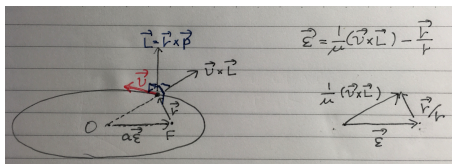 L⃗ = r⃗ × p⃗
v⃗
v⃗ × L⃗
r⃗
O
F
aε⃗
ε⃗ = 1/μ (v⃗ × L⃗) - r⃗/r
1/μ (v⃗ × L⃗)
r⃗/r
ε⃗